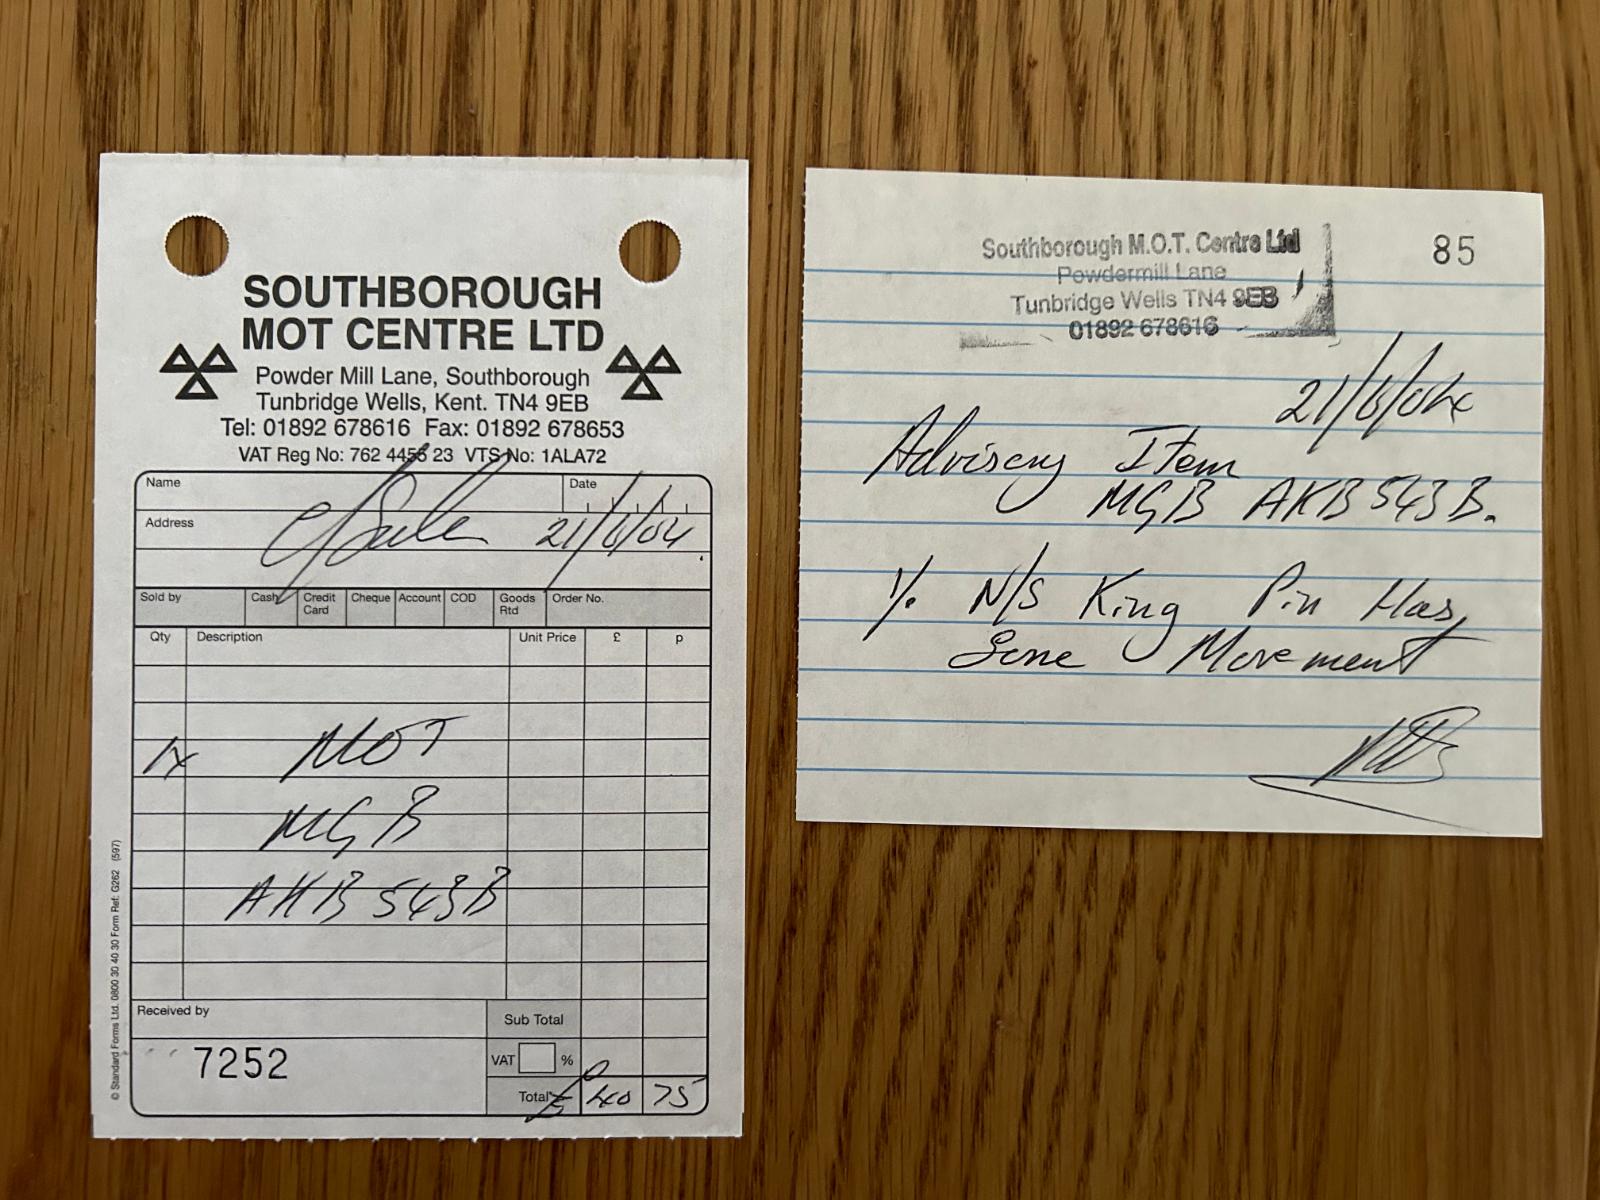 SOUTHBOROUGH
MOT CENTRE LTD
Powder Mill Lane, Southborough
Tunbridge Wells, Kent. TN4 9EB
Tel: 01892 678616 Fax: 01892 678653
VAT Reg No: 762 4455 23 VTS No: 1ALA72
Name
Date
Address
21/6/04.
Sold by Cash Credit Card Cheque Account COD Goods Rtd Order No.
Qty Description Unit Price £ p
1x MOT
MGB
AKB 543B
Received by
Sub Total
7252
VAT %
Total £ 40 75
© Standard Forms Ltd. 0800 30 40 30 Form Ref. G262 (597)
Southborough M.O.T. Centre Ltd
85
Powdermill Lane
Tunbridge Wells TN4 9EB
01892 678616
21/6/04
Advisory Item
MGB AKB 543B.
1/. N/S King Pin Has,
Some Movement